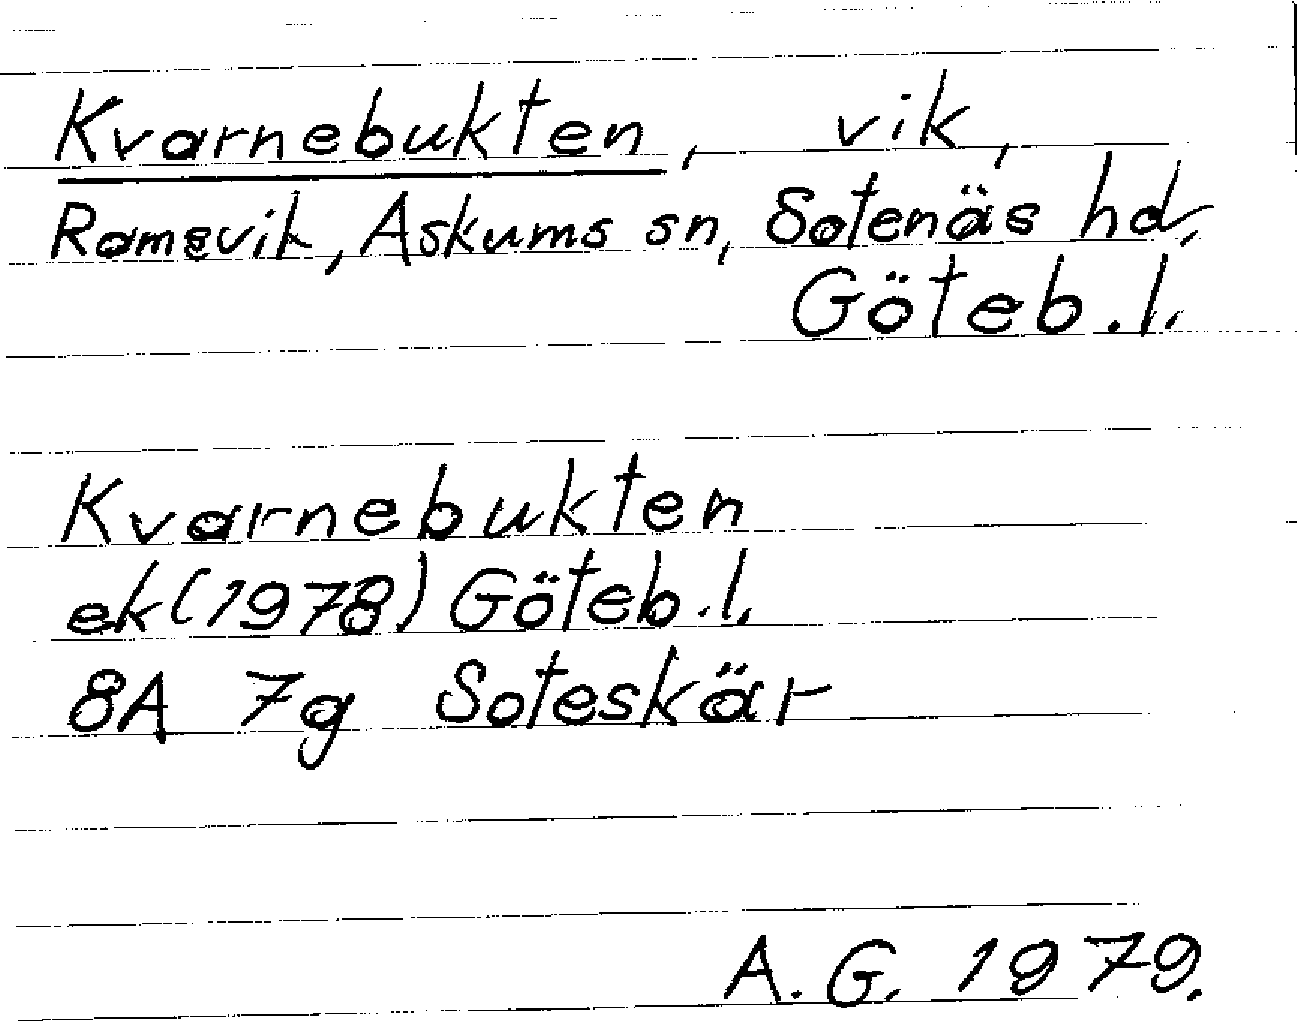 Kvarnebukten, vik,
Ramsvik, Askums sn, Sotenäs hd,
Göteb. l.
Kvarnebukten
ek (1978) Göteb. l.
8A 7g Soteskär
A. G. 1979.